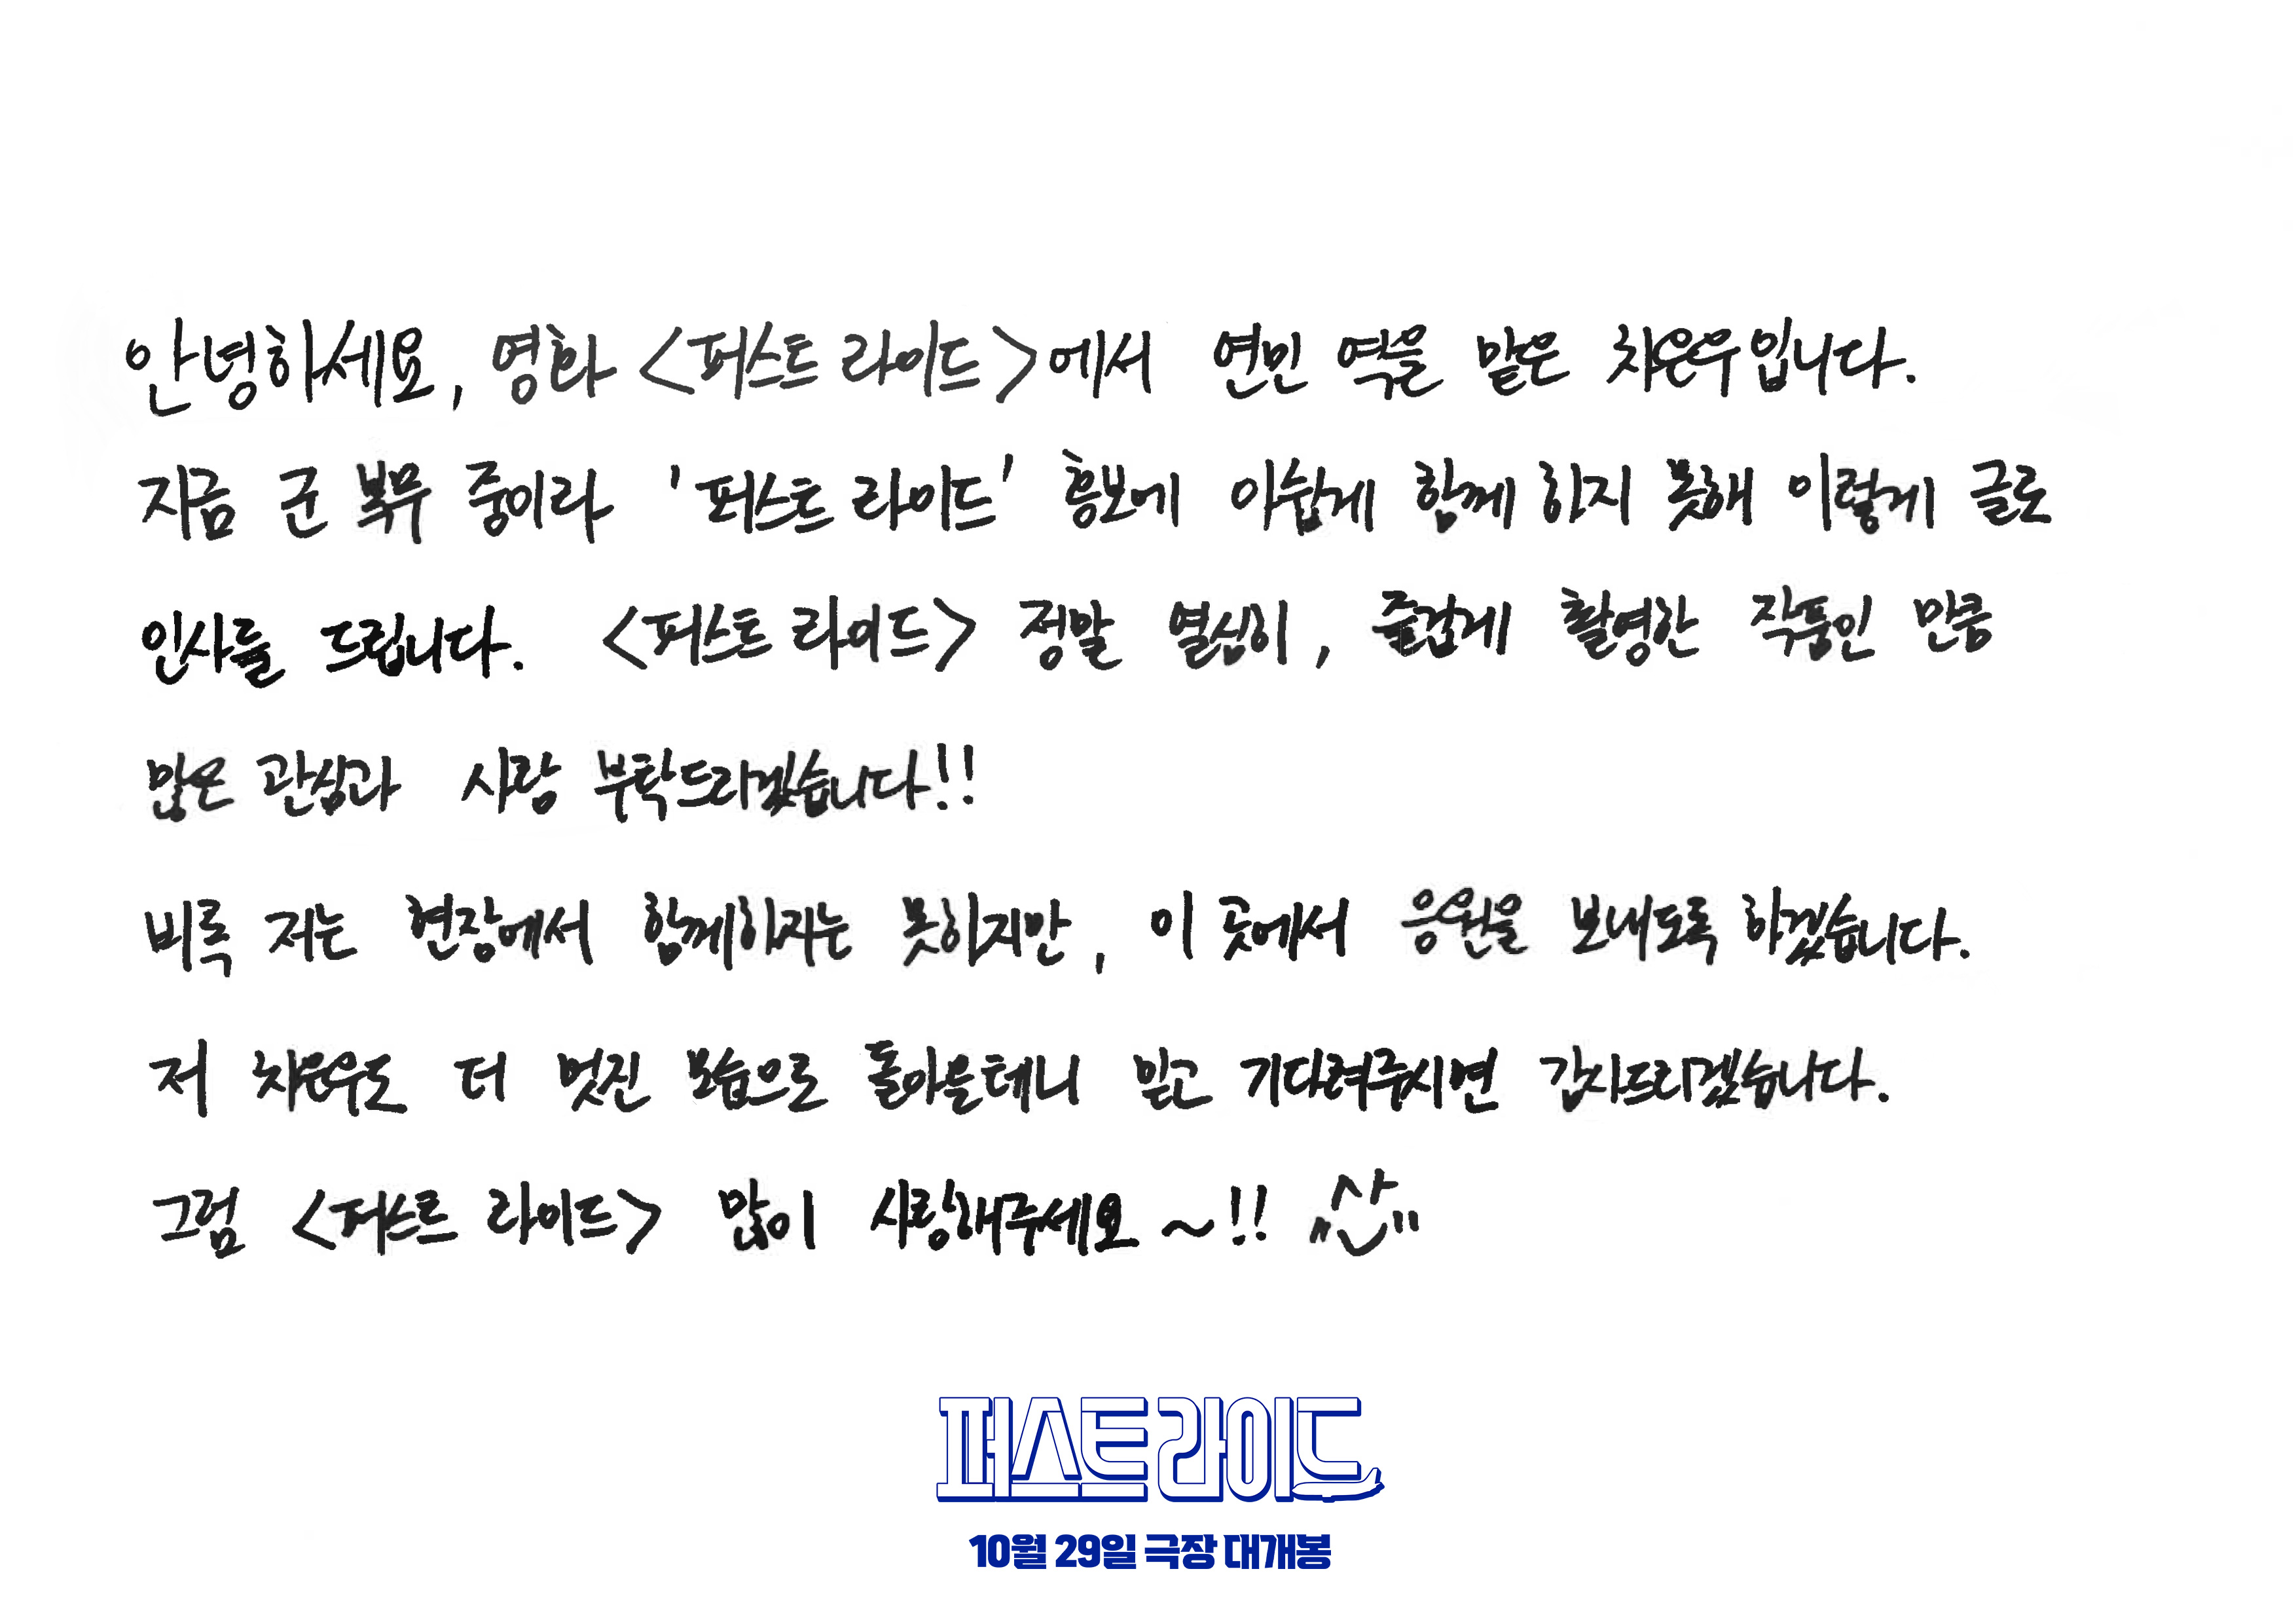 안녕하세요, 영화 <퍼스트 라이드>에서 연민 역을 맡은 차은우입니다.
지금 군 복무 중이라 '퍼스트 라이드' 홍보에 아쉽게 함께 하지 못해 이렇게 글로
인사를 드립니다. <퍼스트 라이드> 정말 열심히, 즐겁게 촬영한 작품인 만큼
많은 관심과 사랑 부탁드리겠습니다!!
비록 저는 현장에서 함께하지는 못하지만, 이 곳에서 응원을 보내도록 하겠습니다.
저 차은우도 더 멋진 모습으로 돌아올테니 믿고 기다려주시면 감사드리겠습니다.
그럼 <퍼스트 라이드> 많이 사랑해주세요~!!
퍼스트 라이드
10월 29일 극장 대개봉